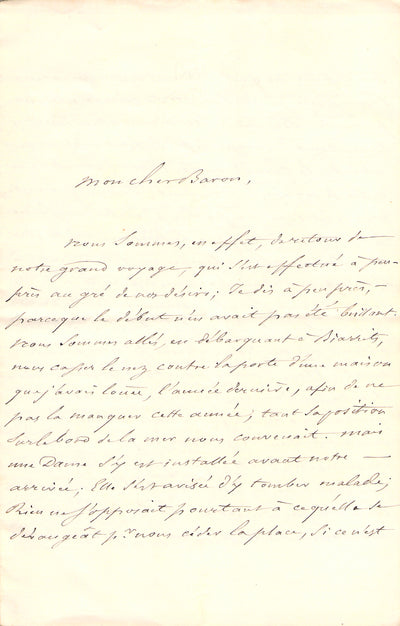 Mon cher Baron,
nous sommes, en effet, de retour de
notre grand voyage, qui s'est effectué à peu-
près au gré de nos désirs; Je dis à peu près, -
parceque le début n'en avait pas été brillant.
nous sommes allés, en débarquant à Biarritz,
nous casser le nez contre la porte d'une maison
que j'avais louée, l'année dernière, afin de ne
pas la manquer cette année; tant sa position
sur le bord de la mer nous convenait. mais
une Dame s'y est installée avant notre -
arrivée; Elle s'est avisée d'y tomber malade;
Rien ne s'opposait pourtant à ce qu'elle se
dérangeât pr. nous céder la place, si ce n'est